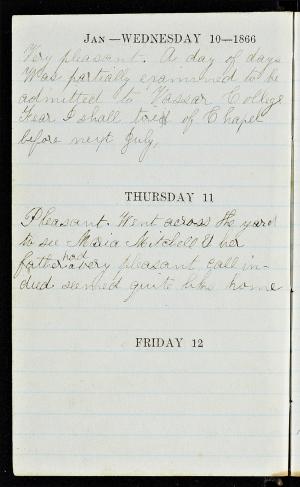 JAN —WEDNESDAY 10—1866
Very pleasant. A day of days
Was partially examined to be
admitted to Vassar College
Fear I shall tire of Chapel
before next July.
THURSDAY 11
Pleasant. Went across the yard
to see Maria Mitchell & her
father had a very pleasant call in-
deed seemed quite like home
FRIDAY 12